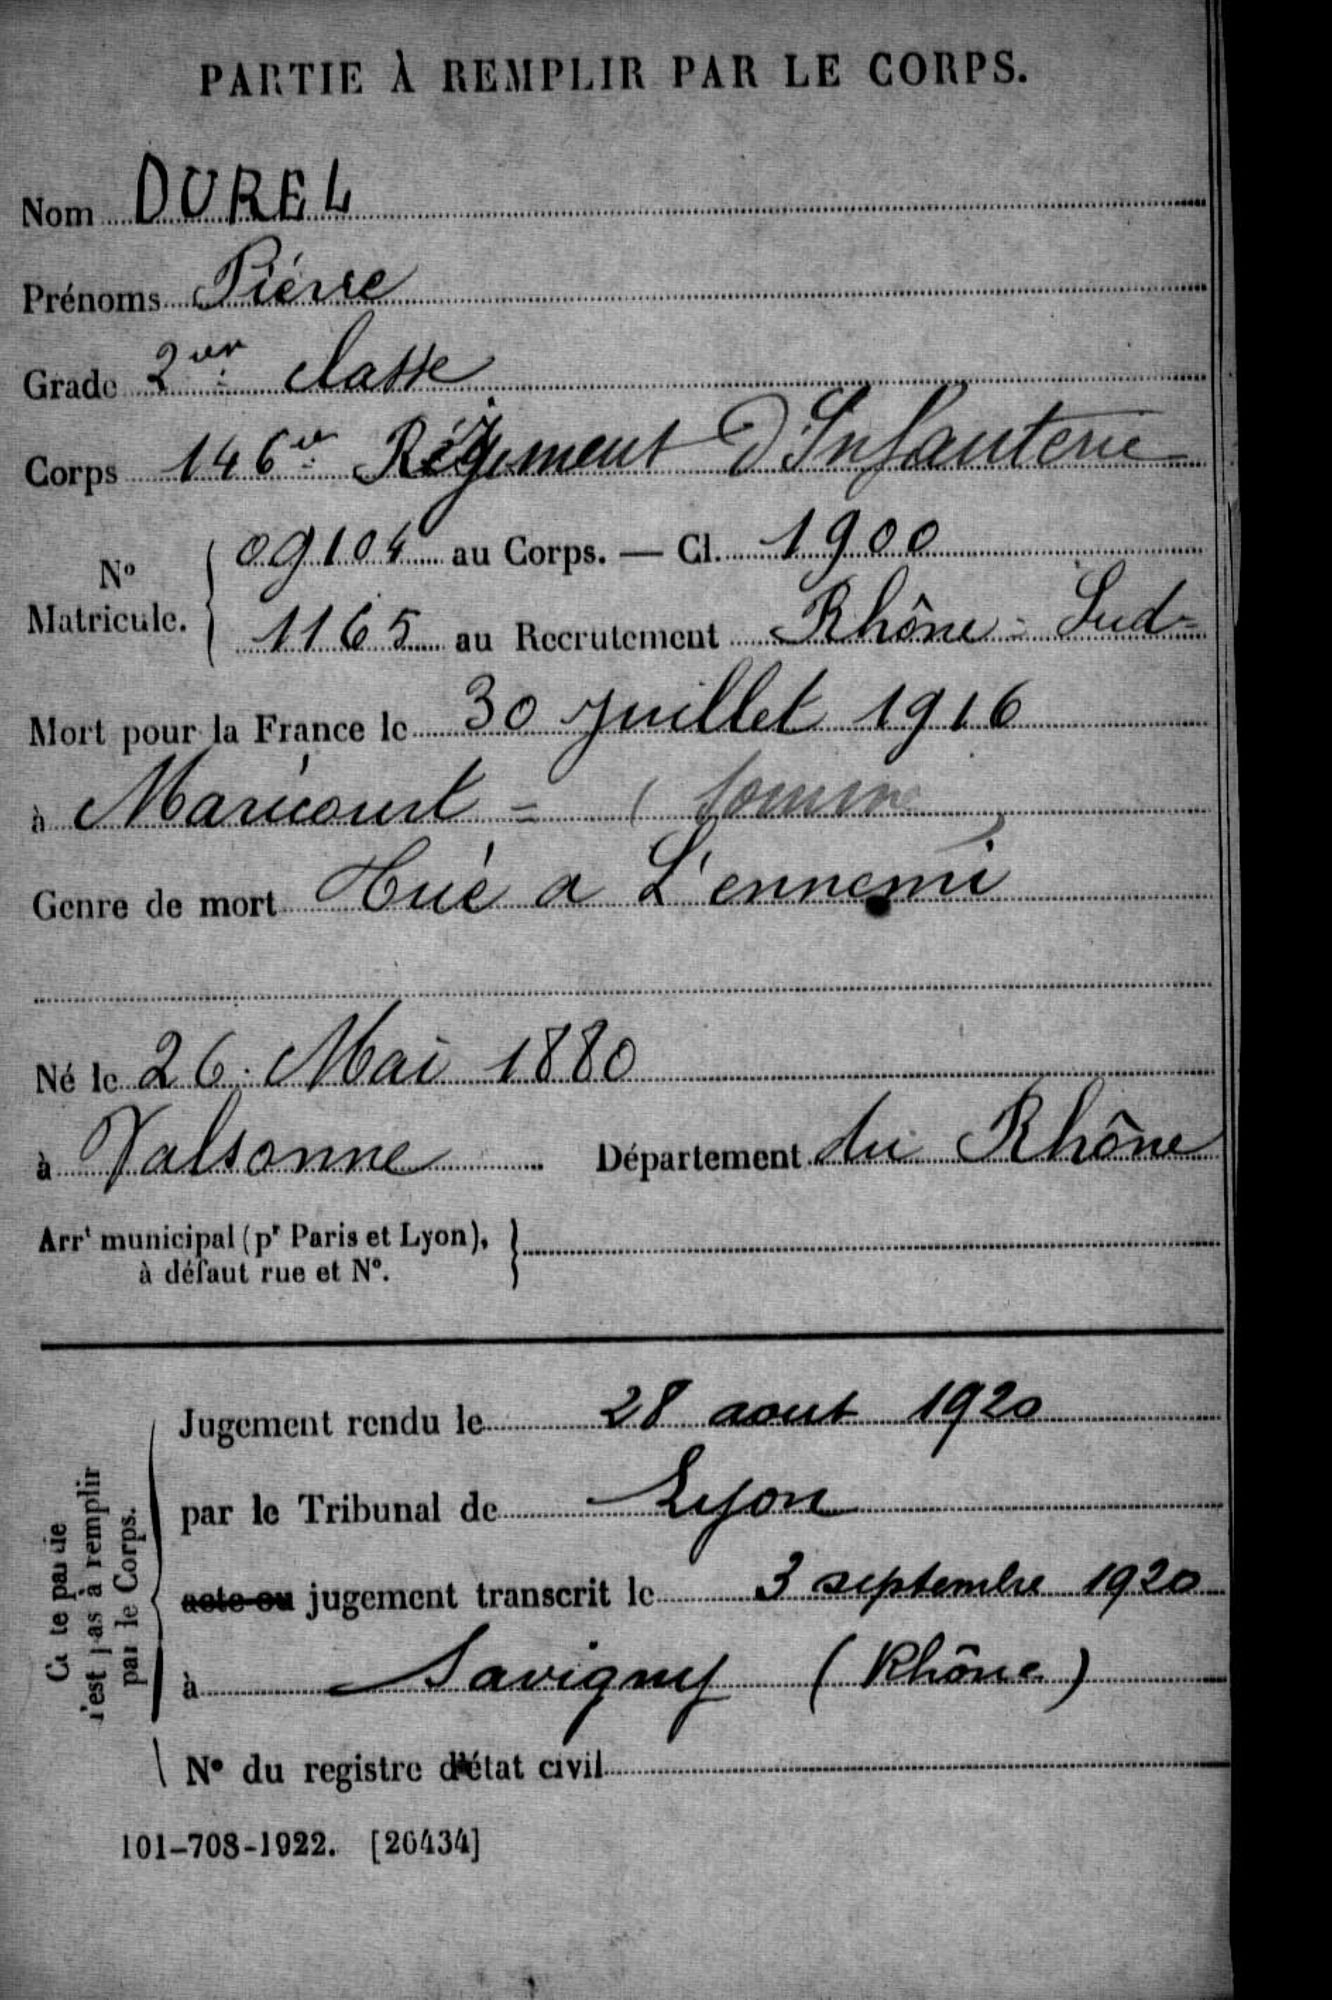 PARTIE À REMPLIR PAR LE CORPS.
Nom DUREL
Prénoms Piérre
Grade 2ᵉʳ classe
Corps 146ᵉ Régiment D'Infanterie
Nº Matricule. { 09104 au Corps. — Cl. 1900
1165 au Recrutement Rhône-Sud
Mort pour la France le 30 Juillet 1916
à Maricourt = (Somme)
Genre de mort Tué a L'ennemi
Né le 26 Mai 1880
à Valsonne Département du Rhône
Arrᵗ municipal (pʳ Paris et Lyon), }
à défaut rue et Nº.
Cette partie
n'est pas à remplir
par le Corps.
Jugement rendu le 28 aout 1920
par le Tribunal de Lyon
acte ou jugement transcrit le 3 septembre 1920
à Savigny (Rhône)
Nº du registre d'état civil
101-708-1922. [26434]